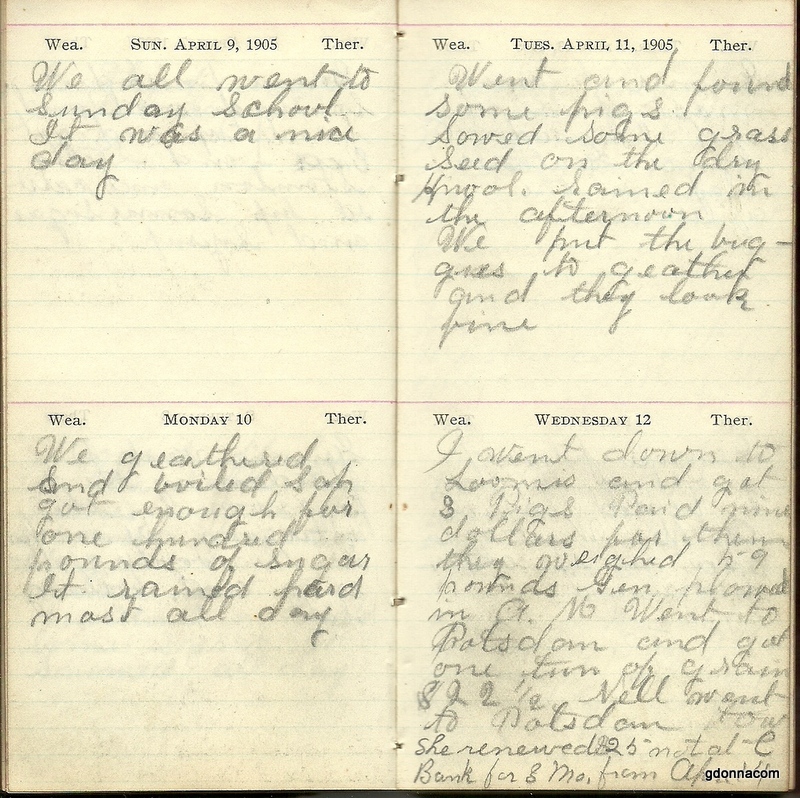 Wea. SUN. APRIL 9, 1905 Ther.
We all went to
Sunday School
It was a nice
day
Wea. MONDAY 10 Ther.
We geathered
and boiled sap
got enough for
one hundred
pounds of sugar
It rained hard
most all day
Wea. TUES. APRIL 11, 1905 Ther.
Went and found
some pigs
Sowed some grass
seed on the dry
knool. rained in
the afternoon
We put the bug-
gies to geather
and they look
fine
Wea. WEDNESDAY 12 Ther.
I went down to
Loomis and got
8 Pigs Paid nine
dollars for them
they weighed 59
pounds Gen plowed
in A. M Went to
Potsdam and got
one tun of grain
$22 ½ Nell went
to Potsdam tow
She renewed 25 not at C
Bank for 8 Mo. from Apr
gdonnacom